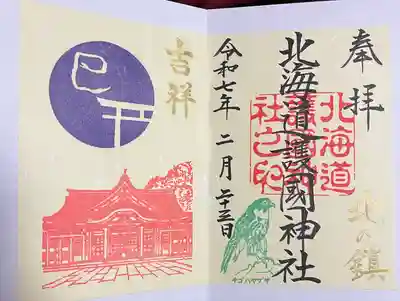 奉拝
北海道護國神社
北海道護國神社之印
北の鎮
チゴハヤブサ
令和七年 二月 二十三日
吉祥
巳